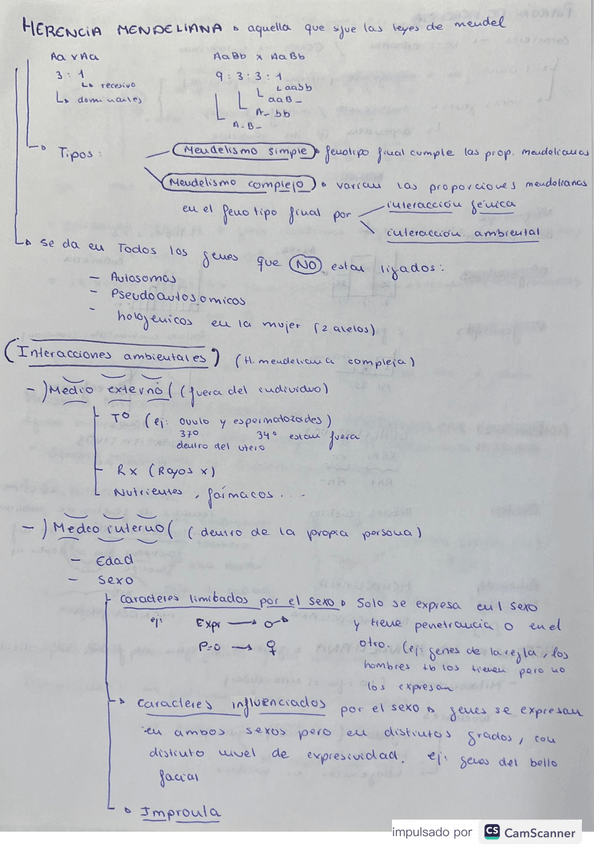 HERENCIA MENDELIANA → aquella que sigue las leyes de mendel
Aa x Aa
AaBb x AaBb
3 : 1
↳ recesivo
↳ dominantes
9 : 3 : 3 : 1
↳ aabb
↳ aaB_
↳ A_bb
↳ A_B_
→ Tipos:
Mendelismo simple → fenotipo final cumple las prop. mendelianas
Mendelismo complejo → varian las proporciones mendelianas
en el fenotipo final por
interacción génica
interacción ambiental
→ Se da en Todos los genes que NO estan ligados:
- Autosomas
- Pseudoautosomicos
- hologenicos en la mujer (2 alelos)
(Interacciones ambientales) (H. mendeliana compleja)
-) Medio externo ( (fuera del individuo)
Tº (ej: ovulo y espermatozoides)
37º 34º estan fuera
dentro del utero
- Rx (Rayos x)
Nutrientes, farmacos...
-) Medio interno ( (dentro de la propia persona)
- Edad
- Sexo
Caracteres limitados por el sexo → Solo se expresa en 1 sexo
ej: Expr → ♂
y tiene penetrancia 0 en el
P=0 → ♀
otro. (ej: genes de la regla, los
hombres tb los tienen pero no
los expresan
→ Caracteres influenciados por el sexo → genes se expresan
en ambos sexos pero en distintos grados, con
distinto nivel de expresividad. ej: genes del bello
facial
→ Impronta
impulsado por CS CamScanner